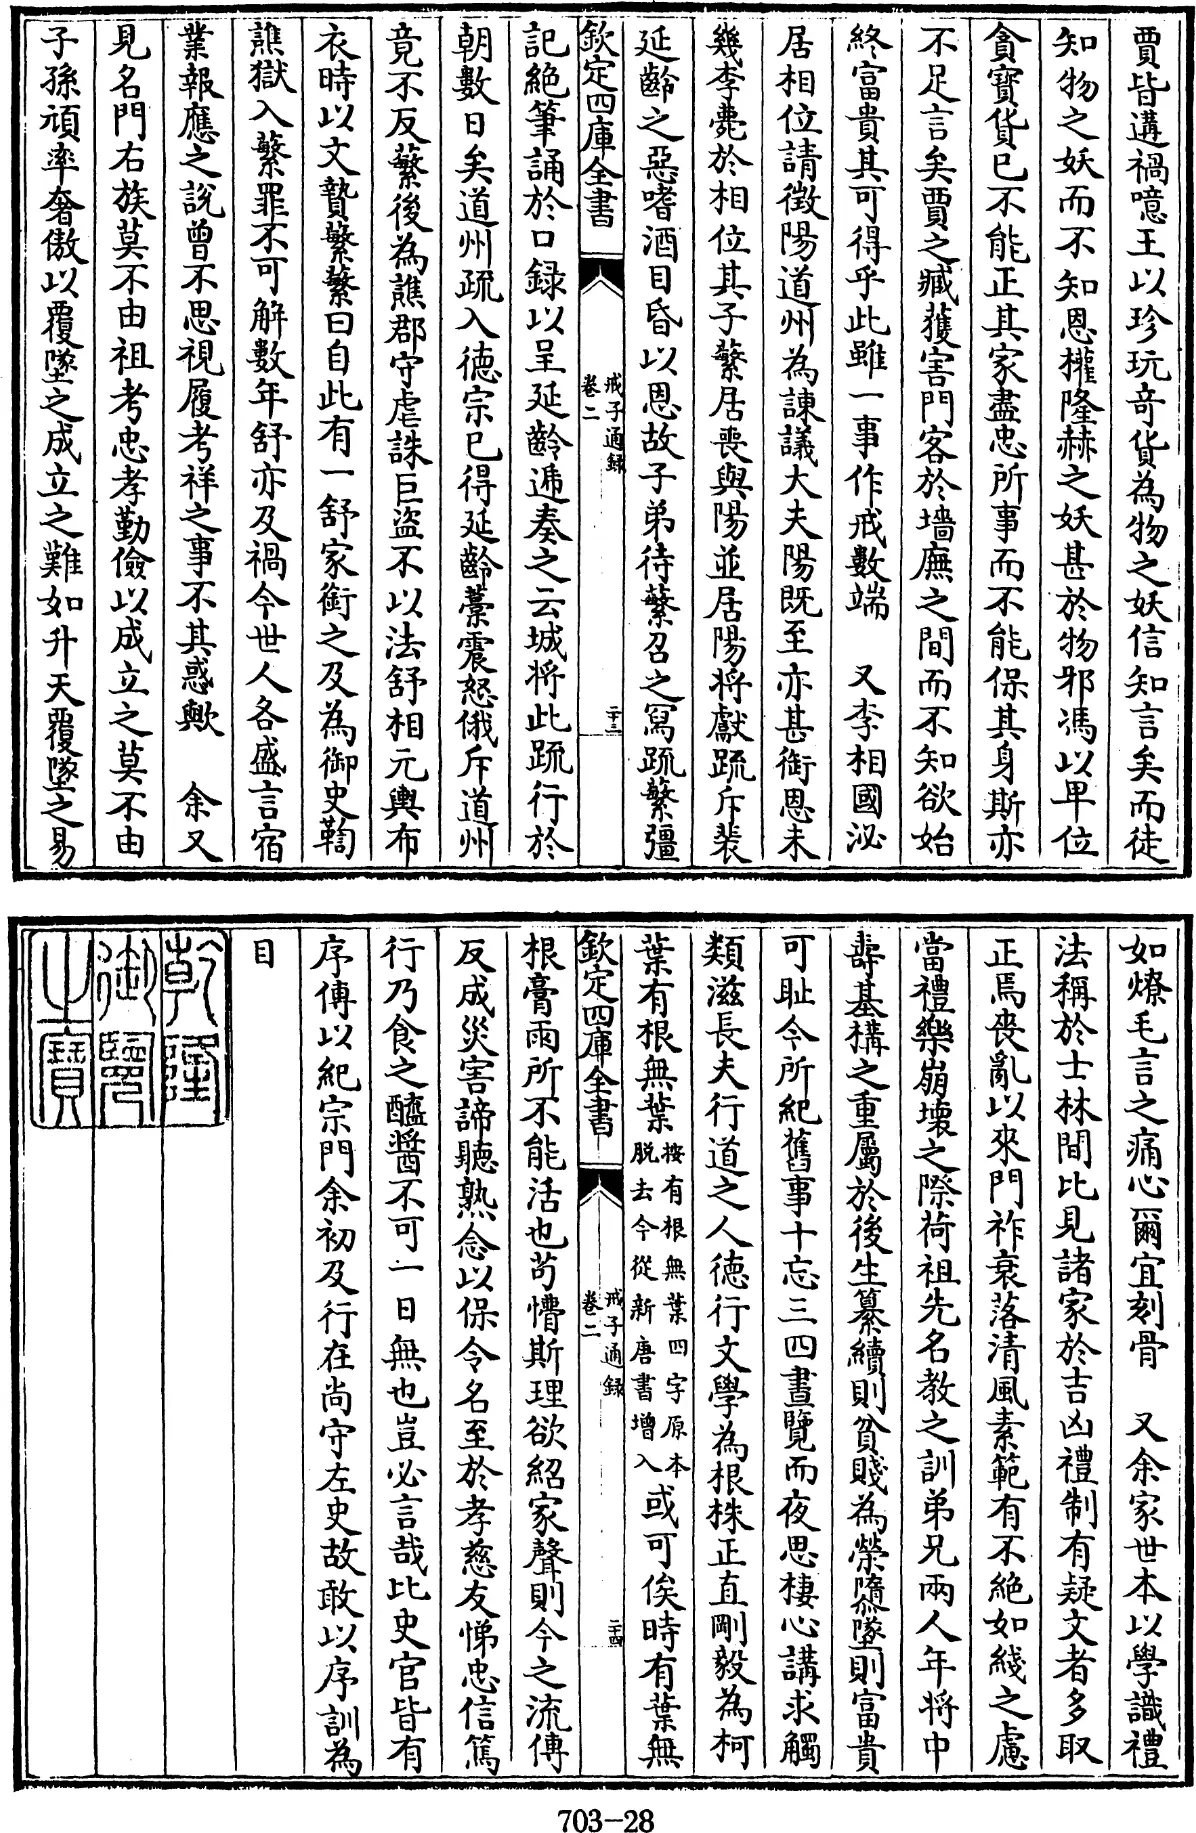 賈皆遘禍噫王以珍玩竒貨為物之妖信知言矣而徒
知物之妖而不知恩權隆赫之妖甚於物邪馮以卑位
貪寶貨已不能正其家盡忠所事而不能保其身斯亦
不足言矣賈之臧獲害門客於墻廡之間而不知欲始
終富貴其可得乎此雖一事作戒數端　又李相國泌
居相位請徵陽道州為諫議大夫陽既至亦甚銜恩未
幾李薨於相位其子蘩居喪與陽並居陽將獻疏斥裴
延齡之惡嗜酒目昏以恩故子弟待蘩召之寫疏蘩彊
欽定四庫全書
戒子通録
卷二
二十三
記絶筆誦於口録以呈延齡遞奏之云城將此疏行於
朝數日矣道州疏入德宗已得延齡藁震怒俄斥道州
竟不反蘩後為譙郡守虐誅巨盜不以法舒相元輿布
衣時以文贄蘩蘩曰自此有一舒家銜之及為御史鞫
譙獄入蘩罪不可解數年舒亦及禍今世人各盛言宿
業報應之說曾不思視履考祥之事不其惑歟　余又
見名門右族莫不由祖考忠孝勤儉以成立之莫不由
子孫頑率奢傲以覆墜之成立之難如升天覆墜之易
如燎毛言之痛心爾宜刻骨　又余家世本以學識禮
法稱於士林間比見諸家於吉凶禮制有疑文者多取
正焉喪亂以來門祚衰落清風素範有不絶如綫之慮
當禮樂崩壞之際荷祖先名教之訓弟兄兩人年將中
壽基構之重屬於後生纂續則貧賤為榮隳墜則富貴
可恥今所紀舊事十忘三四晝覽而夜思棲心講求觸
類滋長夫行道之人德行文學為根株正直剛毅為柯
葉有根無葉按有根無葉四字原本脱去今從新唐書增入或可俟時有葉無
欽定四庫全書
戒子通録
卷二
二十四
根膏雨所不能活也苟懵斯理欲紹家聲則今之流傳
反成災害諦聽熟念以保令名至於孝慈友悌忠信篤
行乃食之醯醬不可一日無也豈必言哉比史官皆有
序傳以紀宗門余初及行在尚守左史故敢以序訓為
目
乾隆
御覽
之寶
703-28